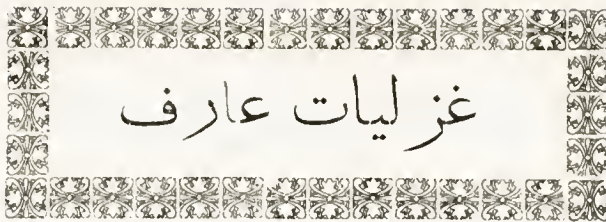 غزلیات عارف